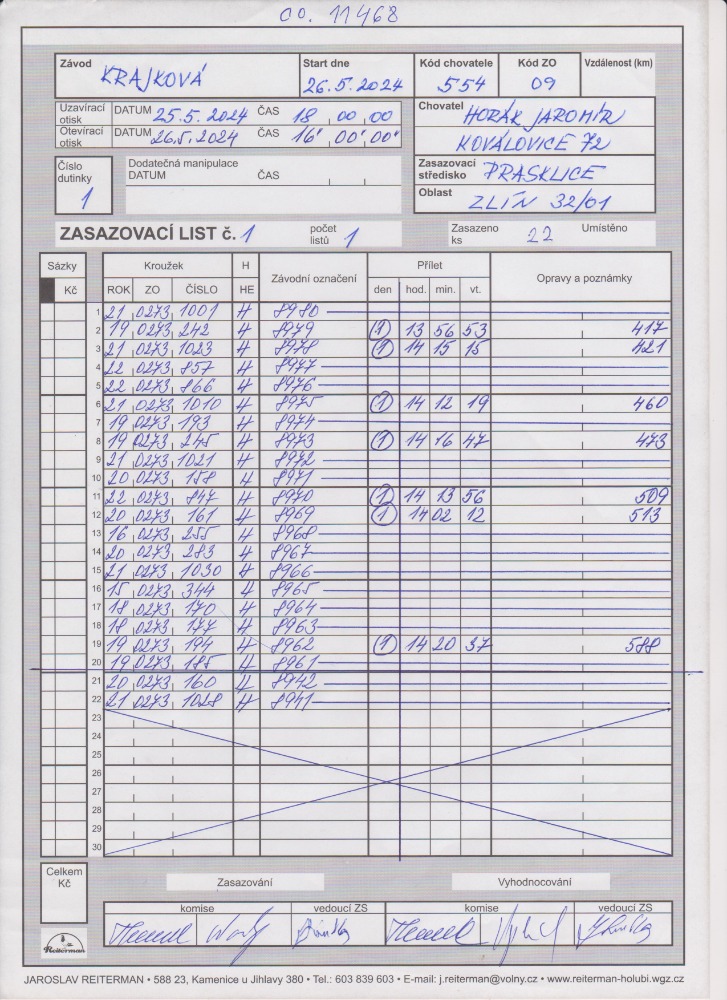 oo. 11468
Závod KRAJKOVÁ Start dne 26.5.2024 Kód chovatele 554 Kód ZO 09 Vzdálenost (km)
Uzavírací otisk DATUM 25.5.2024 ČAS 18 00 00
Otevírací otisk DATUM 26.5.2024 ČAS 16' 00' 00'
Chovatel HORÁK JAROMÍR
KOVÁLOVICE 72
Číslo dutinky 1
Dodatečná manipulace
DATUM ČAS
Zasazovací středisko PRASKLICE
Oblast ZLÍN 32/01
ZASAZOVACÍ LIST č. 1 počet listů 1 Zasazeno ks 22 Umístěno
Sázky Kroužek H Závodní označení Přílet Opravy a poznámky
Kč ROK ZO ČÍSLO HE den hod. min. vt.
1 21 0273 1001 H 8980
2 19 0273 242 H 8979 1 13 56 53 417
3 21 0273 1023 H 8978 1 14 15 15 421
4 22 0273 857 H 8977
5 22 0273 866 H 8976
6 21 0273 1010 H 8975 1 14 12 19 460
7 19 0273 193 H 8974
8 19 0273 245 H 8973 1 14 16 47 473
9 21 0273 1021 H 8972
10 20 0273 158 H 8971
11 22 0273 847 H 8970 1 14 13 56 509
12 20 0273 161 H 8969 1 14 02 12 513
13 16 0273 255 H 8968
14 20 0273 283 H 8967
15 21 0273 1030 H 8966
16 15 0273 344 H 8965
17 18 0273 170 H 8964
18 18 0273 177 H 8963
19 19 0273 194 H 8962 1 14 20 37 588
20 19 0273 185 H 8961
21 20 0273 160 H 8942
22 21 0273 1028 H 8941
23
24
25
26
27
28
29
30
Celkem Kč
Zasazování Vyhodnocování
komise vedoucí ZS komise vedoucí ZS
Reiterman
JAROSLAV REITERMAN • 588 23, Kamenice u Jihlavy 380 • Tel.: 603 839 603 • E-mail: j.reiterman@volny.cz • www.reiterman-holubi.wgz.cz